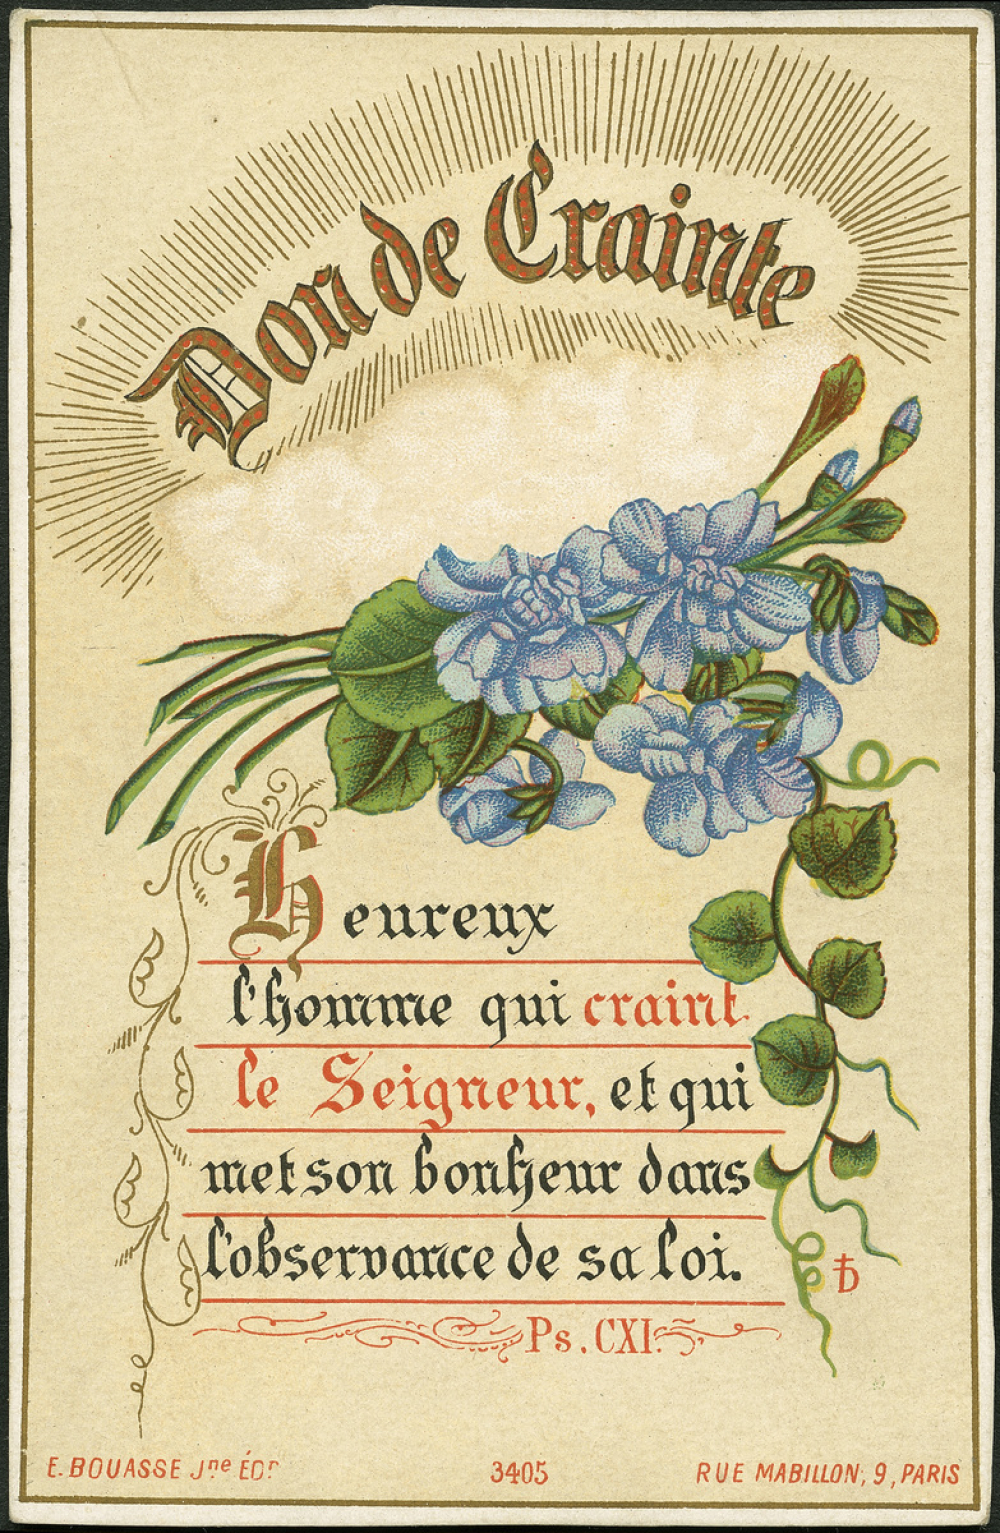 Don de Crainte
Heureux
l'homme qui craint
le Seigneur, et qui
met son bonheur dans
l'observance de sa loi.
Ps. CXI.
E. BOUASSE Jne ÉDr
3405
RUE MABILLON, 9, PARIS